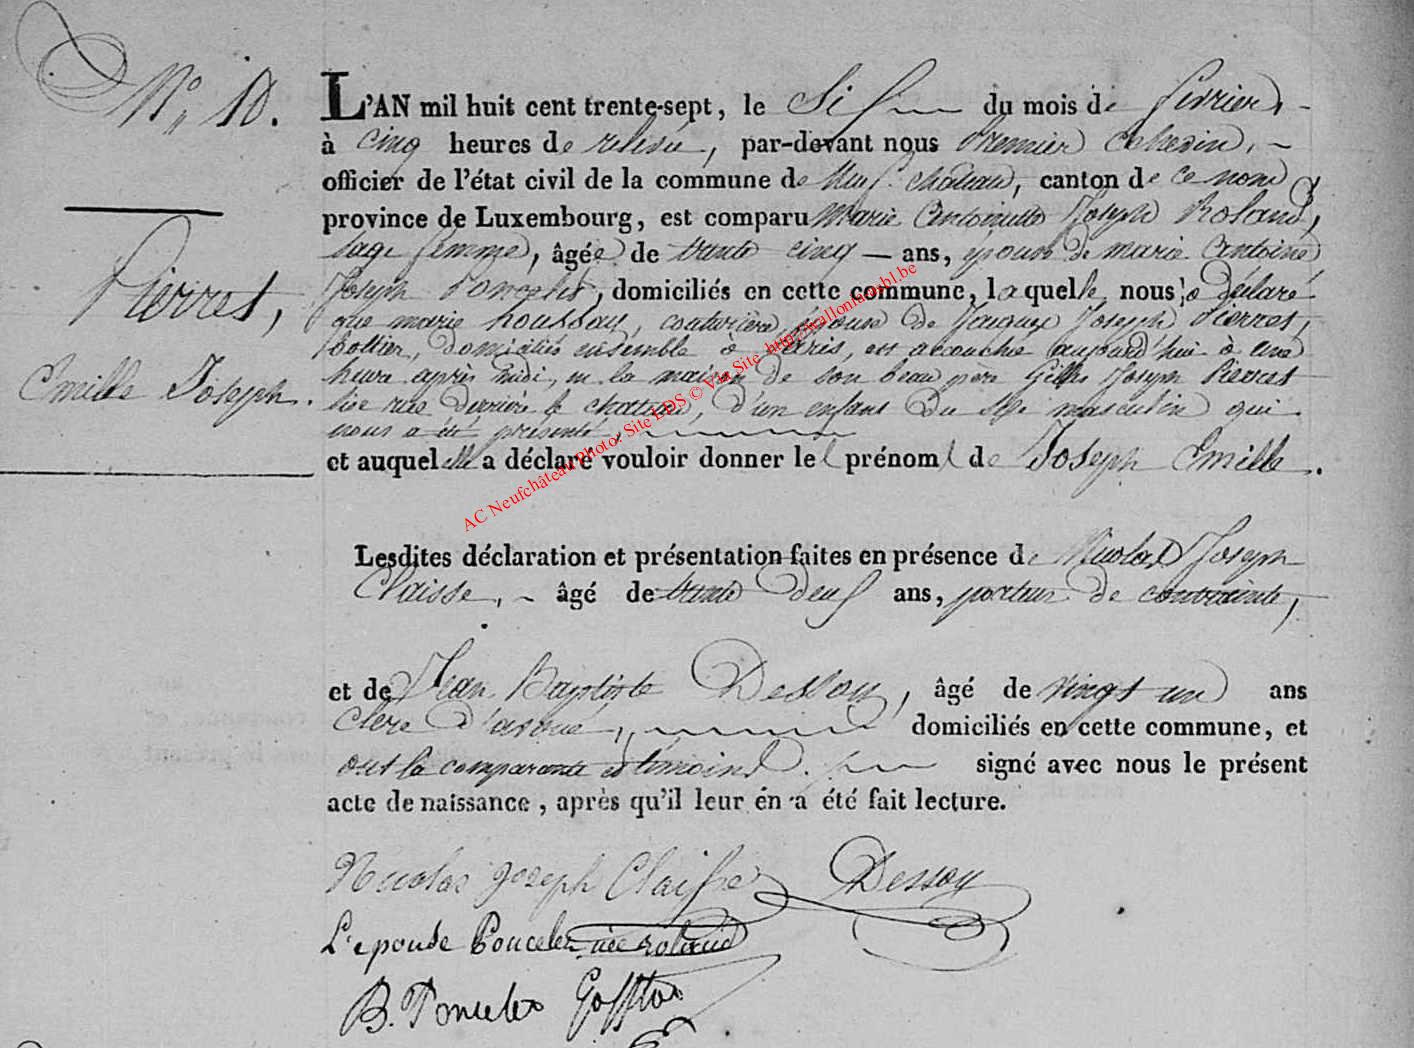 N° 10.
L'AN mil huit cent trente-sept, le Six du mois de février,
à cinq heures de relevée, par-devant nous Premier Echevin,
officier de l'état civil de la commune de Neufchateau, canton de ce nom
province de Luxembourg, est comparu Marie Antoinette Joseph Roland,
sage femme, âgée de trente cinq ans, épouse de marie Antoine
Pierres,
Joseph Poncelet, domiciliés en cette commune, laquelle nous a déclaré
que marie houssay, couturière, épouse de Jacques Joseph Pierres,
bottier, domiciliés ensemble à Paris, est accouchée aujourd'hui à une
Emille Joseph.
heure après midi, en la maison de son beau père Gilles Joseph Pierres
sise rue derrière le chateau, d'un enfant du sexe masculin qui
nous a été présenté,
et auquel elle a déclaré vouloir donner le prénom de Joseph Emille.
Lesdites déclaration et présentation faites en présence de Nicolas Joseph
Claisse, âgé de trente deux ans, porteur de contrainte,
et de Jean Baptiste Dessoy, âgé de vingt un ans
clerc d'avoué, domiciliés en cette commune, et
ont la comparante et témoins signé avec nous le présent
acte de naissance, après qu'il leur en a été fait lecture.
Nicolas Joseph Claisse Dessoy
L'epouse Poncelet née roland
B. Poncelet
AC Neufchâteau Photo: Site LDS © Via Site http://wallonia-asbl.be